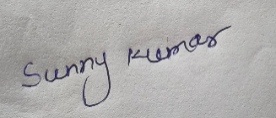 Sunny Kumar